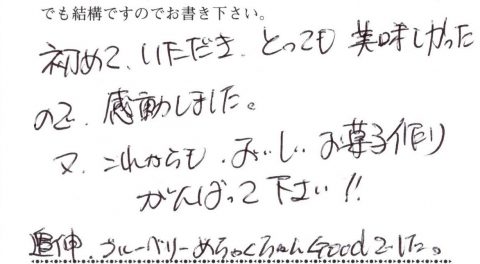 でも結構ですのでお書き下さい。
初めて、いただき、とっても 美味しかった
ので、感動しました。
又、これからも、おいしい お菓子作り
がんばって下さい!!
追伸、ブルーベリーめちゃくちゃんGoodでした。